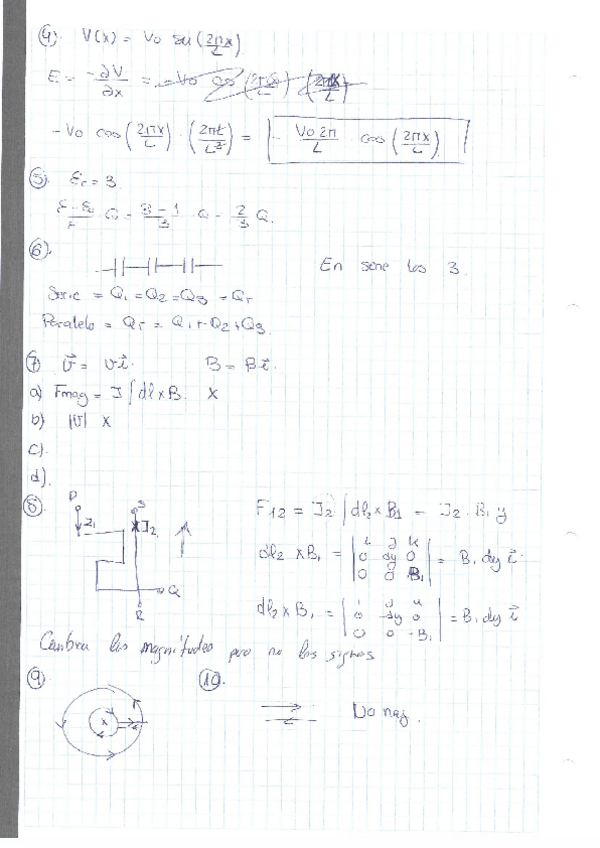 4) V(x) = Vo su (2πx/L)
E = -∂V/∂x = -Vo cos (2πx/L)
-Vo cos (2πx/L) · (2πL/L²) = - Vo2π/L cos (2πx/L)
5) Er = 3
Q = 3-1/3 Q = 2/3 Q.
6)
En serie los 3.
Serie = Q1 = Q2 = Q3 = QT
Paralelo = QT = Q1 + Q2 + Q3
7) v = vi. B = Bi.
a) Fmag = I ∫ dl x B. X
b) |v| X
c).
d).
8) F12 = I2 ∫ dl2 x B1 = I2 · B1 y
P S
I2
dl2 x B1 = | i j k 0 dy 0 0 0 B1 | = B1 dy i
Q
R
dl2 x B1 = | i j k 0 -dy 0 0 0 -B1 | = B1 dy i
Cambian las magnitudes pero no los signos
9) 10).
x
No hay.